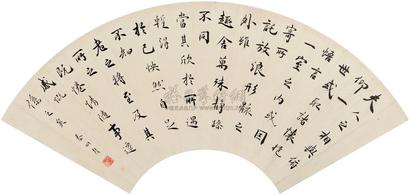 夫人之相與俯
仰一
世或取諸懷抱
悟言
一室之內或因
寄所
託放浪形骸之
外雖
趣舍萬殊靜躁
不同
當其欣於所遇
暫得
於己快然自足
不知
老之將至及其
所之
既倦情隨事遷
感慨
係之矣